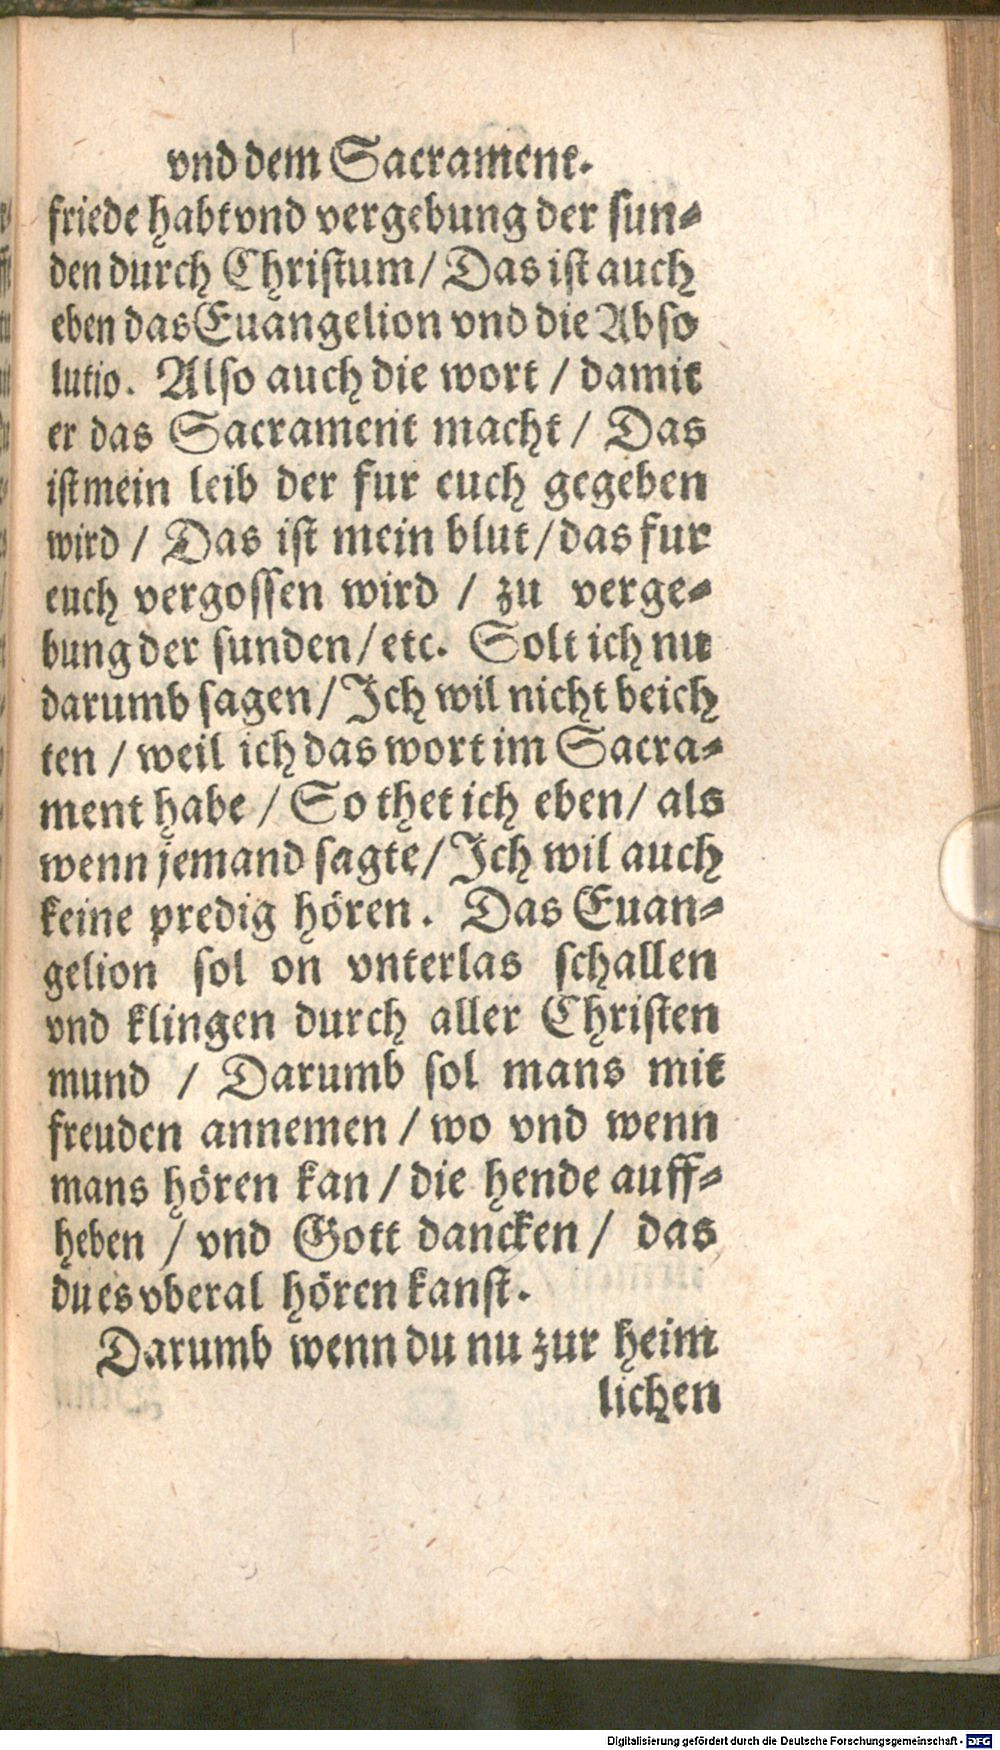 vnd dem Sacrament.
friede habt vnd vergebung der sun⸗
den durch Christum / Das ist auch
eben das Euangelion vnd die Abso
lutio. Also auch die wort / damit
er das Sacrament macht / Das
ist mein leib der fur euch gegeben
wird / Das ist mein blut / das fur
euch vergossen wird / zu verge⸗
bung der sunden / etc. Solt ich nu
darumb sagen / Ich wil nicht beich
ten / weil ich das wort im Sacra⸗
ment habe / So thet ich eben / als
wenn jemand sagte / Ich wil auch
keine predig hören. Das Euan⸗
gelion sol on vnterlas schallen
vnd klingen durch aller Christen
mund / Darumb sol mans mit
freuden annemen / wo vnd wenn
mans hören kan / die hende auff⸗
heben / vnd Gott dancken / das
du es vberal hören kanst.
Darumb wenn du nu zur heim
lichen
Digitalisierung gefördert durch die Deutsche Forschungsgemeinschaft - DFG